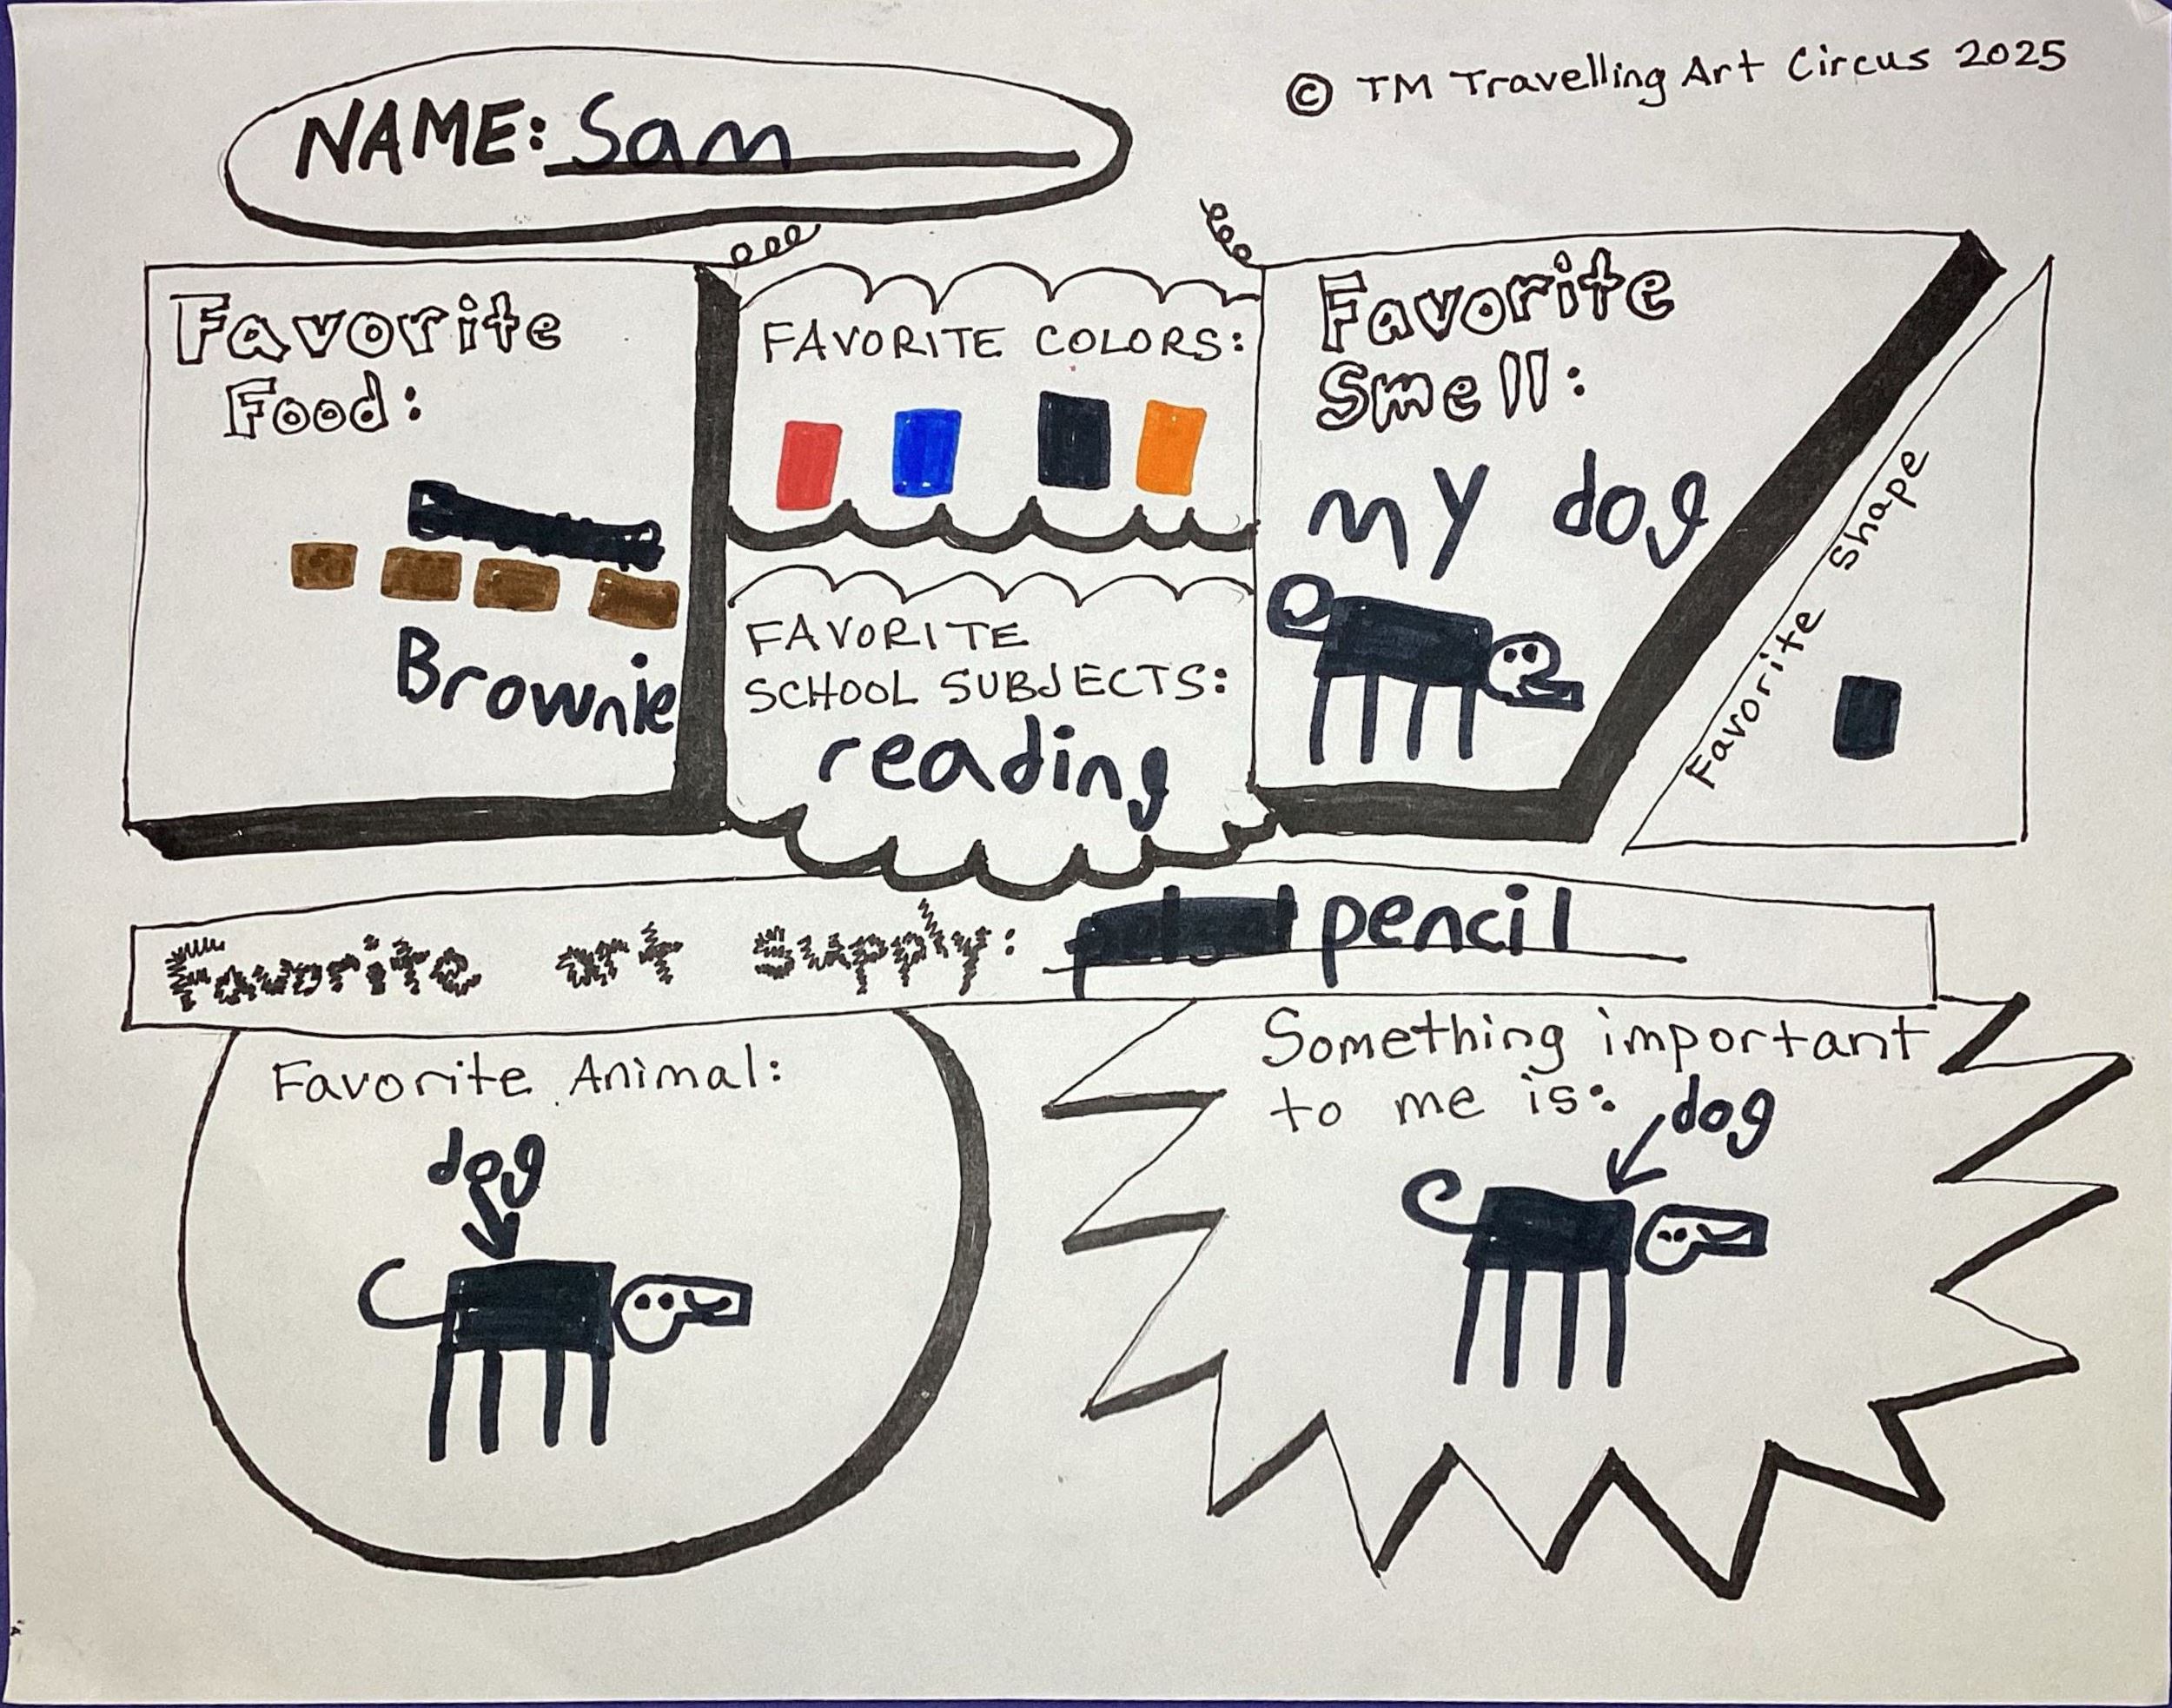 NAME: Sam
© TM Travelling Art Circus 2025
Favorite
Food:
Brownie
FAVORITE COLORS:
FAVORITE
SCHOOL SUBJECTS:
reading
Favorite
Smell:
my dog
Favorite Shape
Favorite art supply: pencil
Favorite Animal:
dog
Something important
to me is:
dog